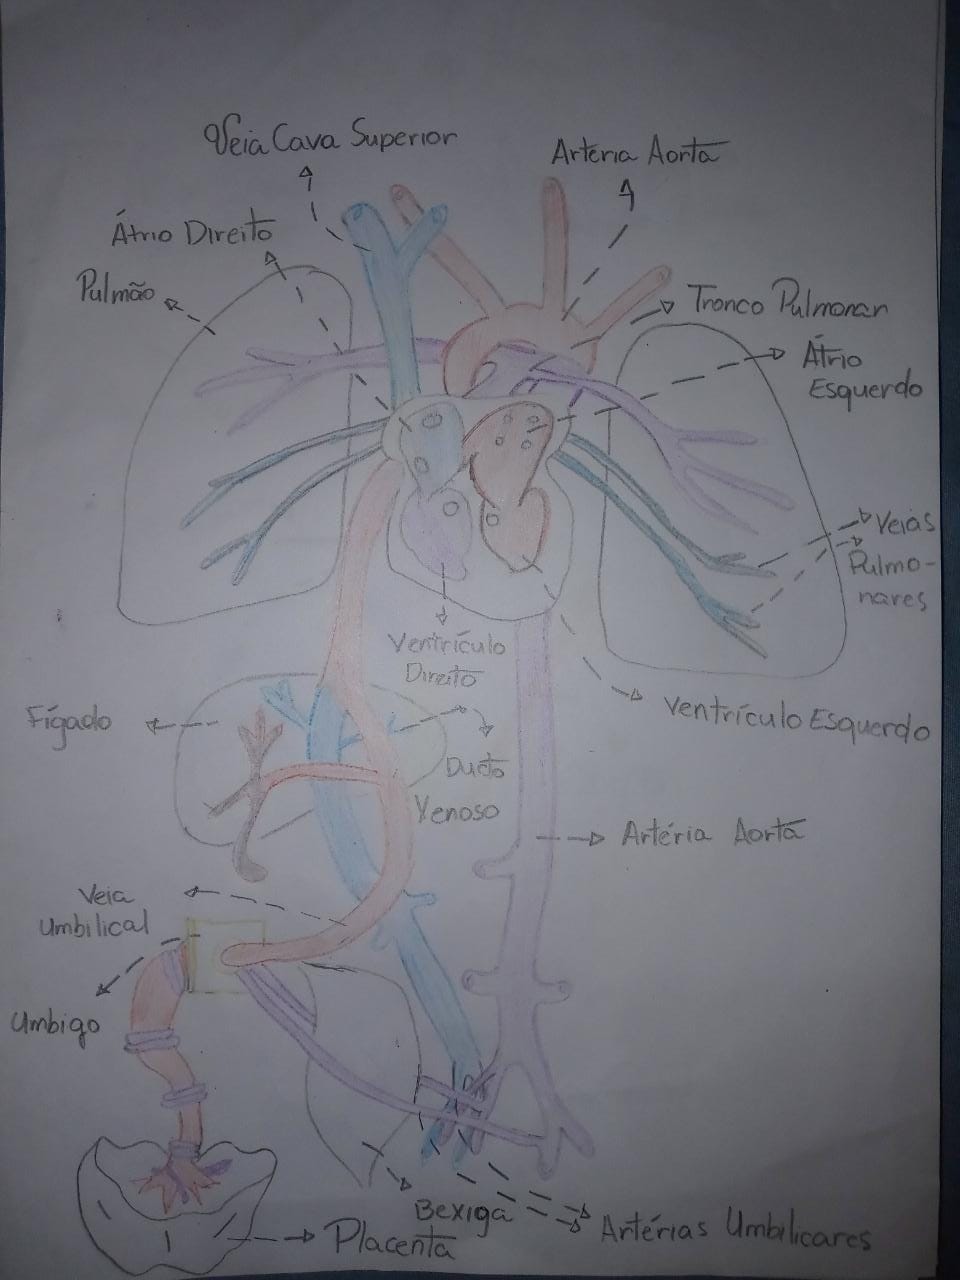 Veia Cava Superior
Arteria Aorta
Átrio Direito
Pulmão
Tronco Pulmonar
Átrio
Esquerdo
Veias
Pulmo-
nares
Ventrículo
Direito
Ventrículo Esquerdo
Fígado
Ducto
Venoso
Artéria Aorta
Veia
Umbilical
Umbigo
Bexiga
Artérias Umbilicares
Placenta